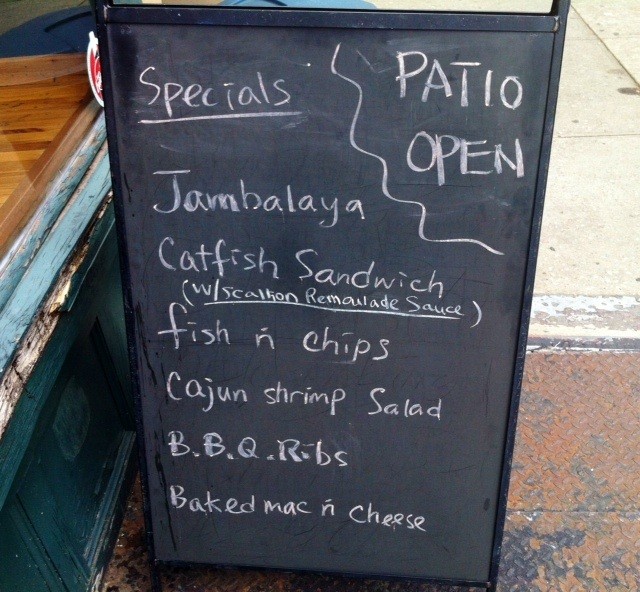 Specials
PATIO
OPEN
Jambalaya
Catfish Sandwich
(w/scallion Remoulade Sauce)
fish ñ chips
Cajun shrimp Salad
B.B.Q. Ribs
Baked mac ñ cheese